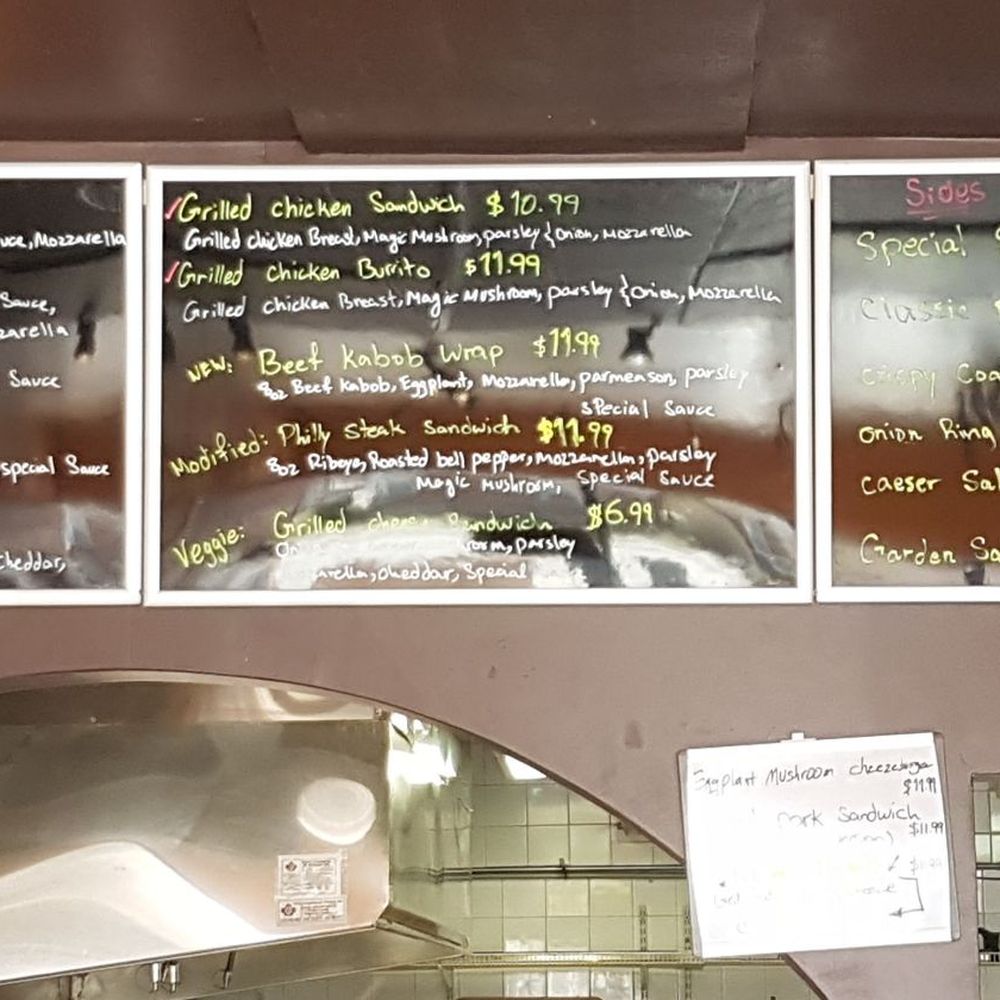 Sauce, Mozzarella
Sauce,
Sauce
special Sauce
cheddar,
Grilled chicken Sandwich $10.99
Grilled chicken Breast, Magic Mushroom, parsley & onion, Mozzarella
Grilled chicken Burrito $11.99
Grilled chicken Breast, Magic Mushroom, parsley & onion, Mozzarella
NEW: Beef Kabob Wrap $11.99
8oz Beef Kabob, Eggplant, Mozzarella, parmeson, parsley
special Sauce
Modified: Philly Steak Sandwich $11.99
8oz Ribeye, Roasted bell pepper, Mozzarella, parsley
Magic Mushroom, Special Sauce
Veggie: Grilled Sandwich $6.99
parsley
cheddar, Special
Sides
Special
Classic
Crispy
Onion Ring
Caeser
Garden
Eggplant Mushroom
$11.99
Sandwich
$11.99